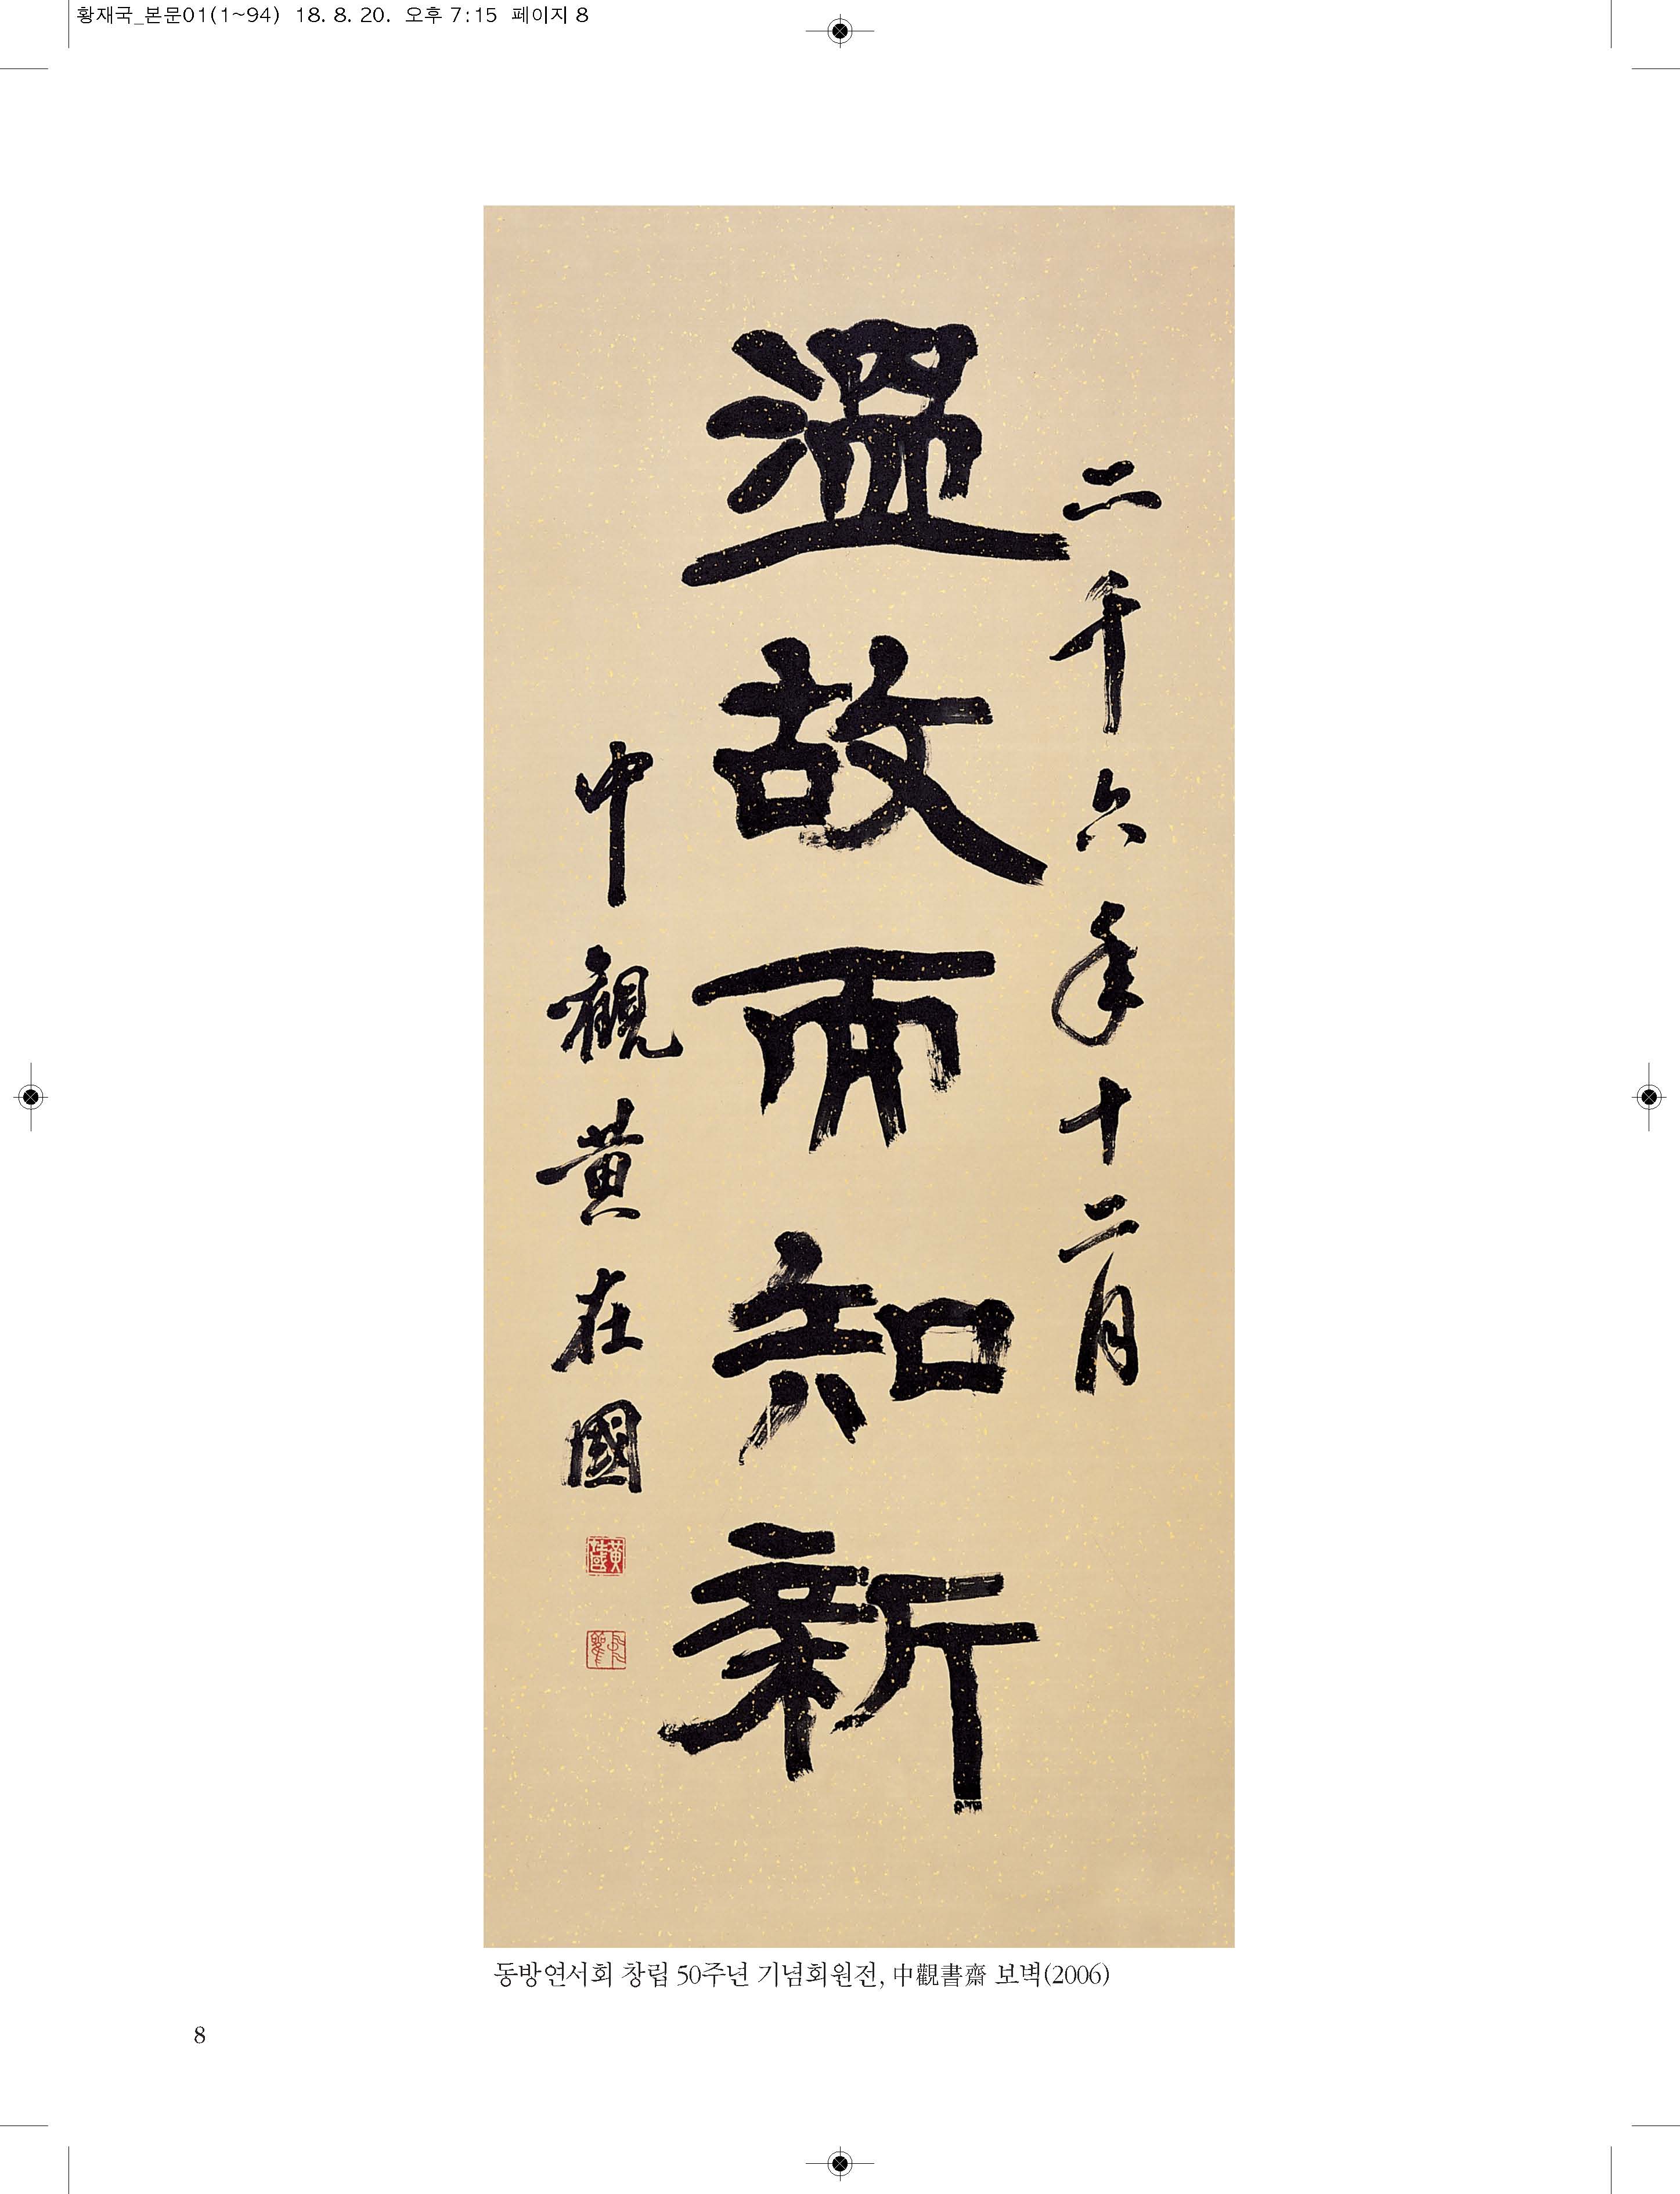 황재국_본문01(1~94) 18. 8. 20. 오후 7:15 페이지 8
二千六年十二月
溫故而知新
中觀黃在國
동방연서회 창립 50주년 기념회원전, 中觀書齋 보벽(2006)
8